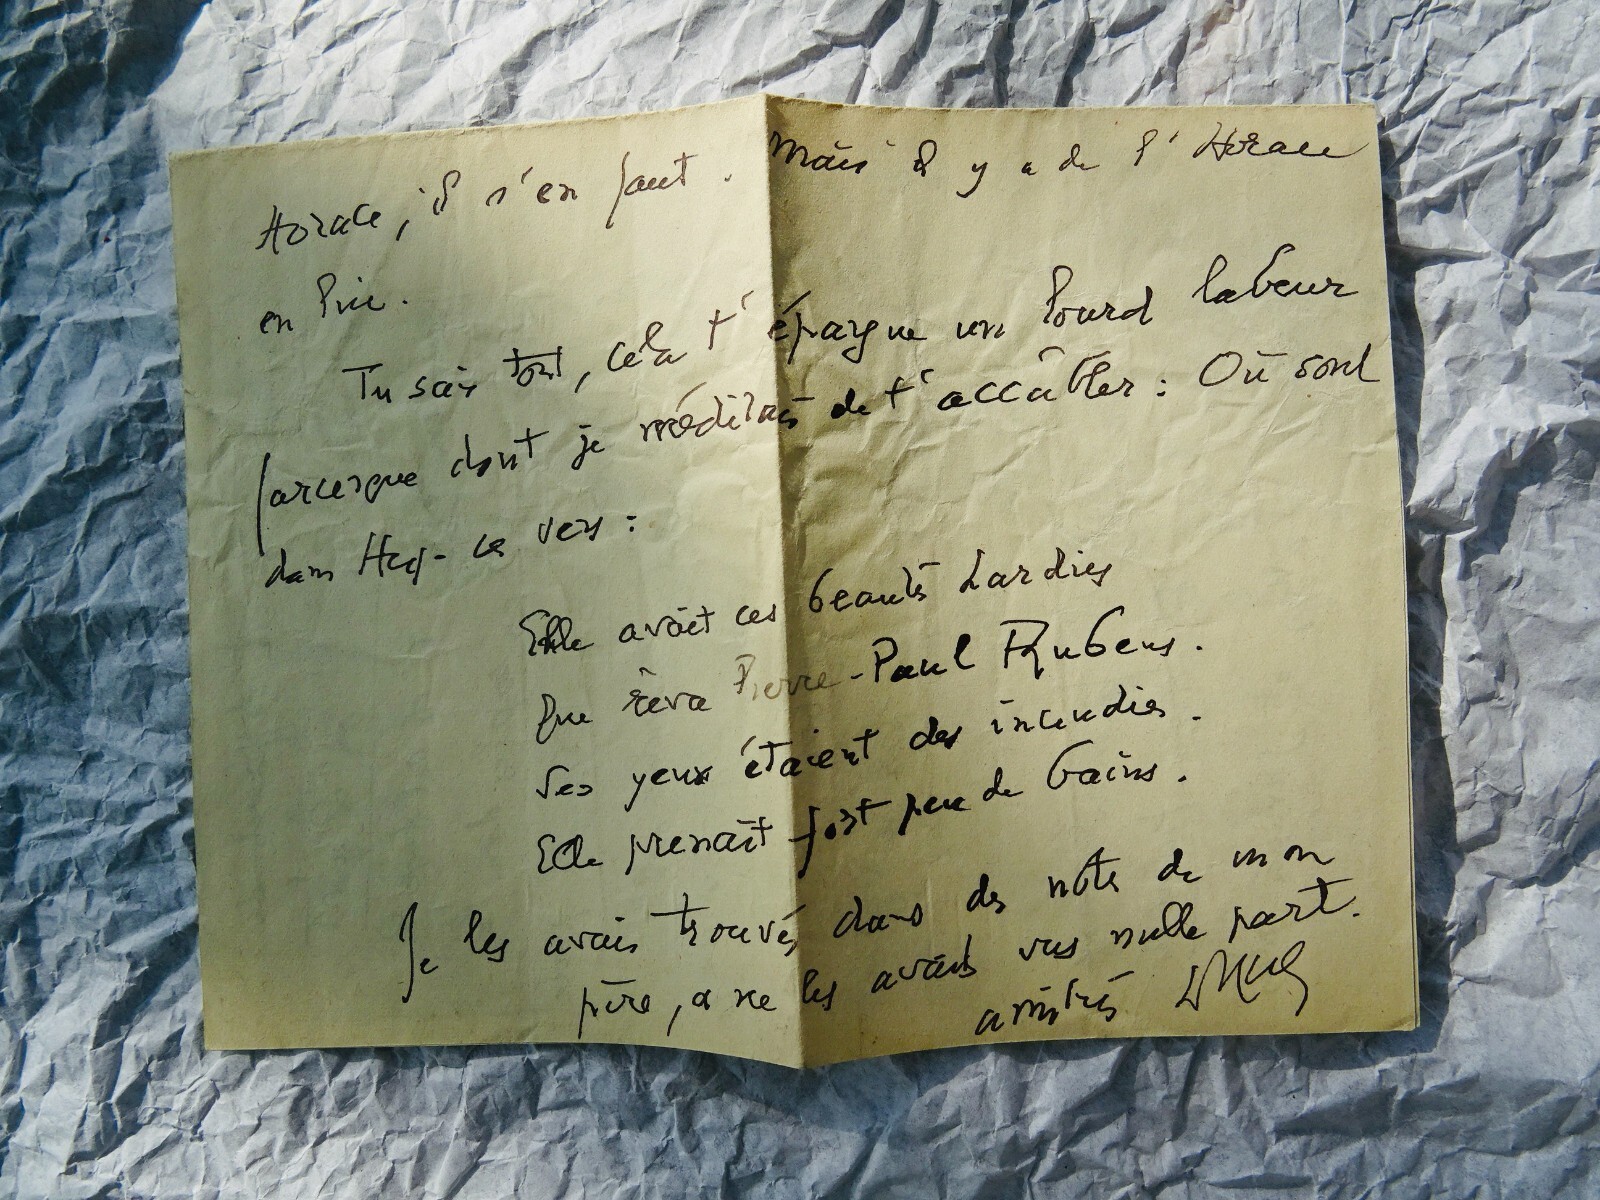 Horace, il s'en faut. Mais il y a de l'Horace
en lui.
Tu sais tout, cela t'épargne un lourd labeur
farcesque dont je méditais de t'accabler : Où sont
dans ces vers :
Elle avait ces beautés hardies
Que rêva Pierre-Paul Rubens.
Ses yeux étaient des incendies.
Elle prenait fort peu de bains.
Je les avais trouvés dans des notes de mon
père, et ne les avais vus nulle part.
amitiés